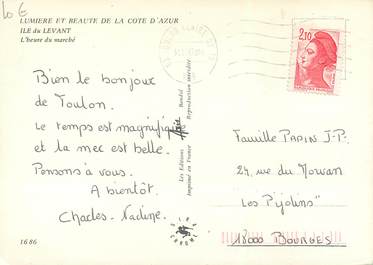 10 €
LUMIERE ET BEAUTE DE LA COTE D'AZUR
ILE du LEVANT
L'heure du marché
Bien le bonjour
de Toulon.
Le temps est magnifique
et la mer est belle.
Pensons à vous.
A bientôt.
Charles. Nadine.
1686
Les Editions
Bandol
Imprimé en France
Reproduction interdite
2,10
Famille PAPIN J-P.
24, rue du
Les Pijolins
18000 BOURGES